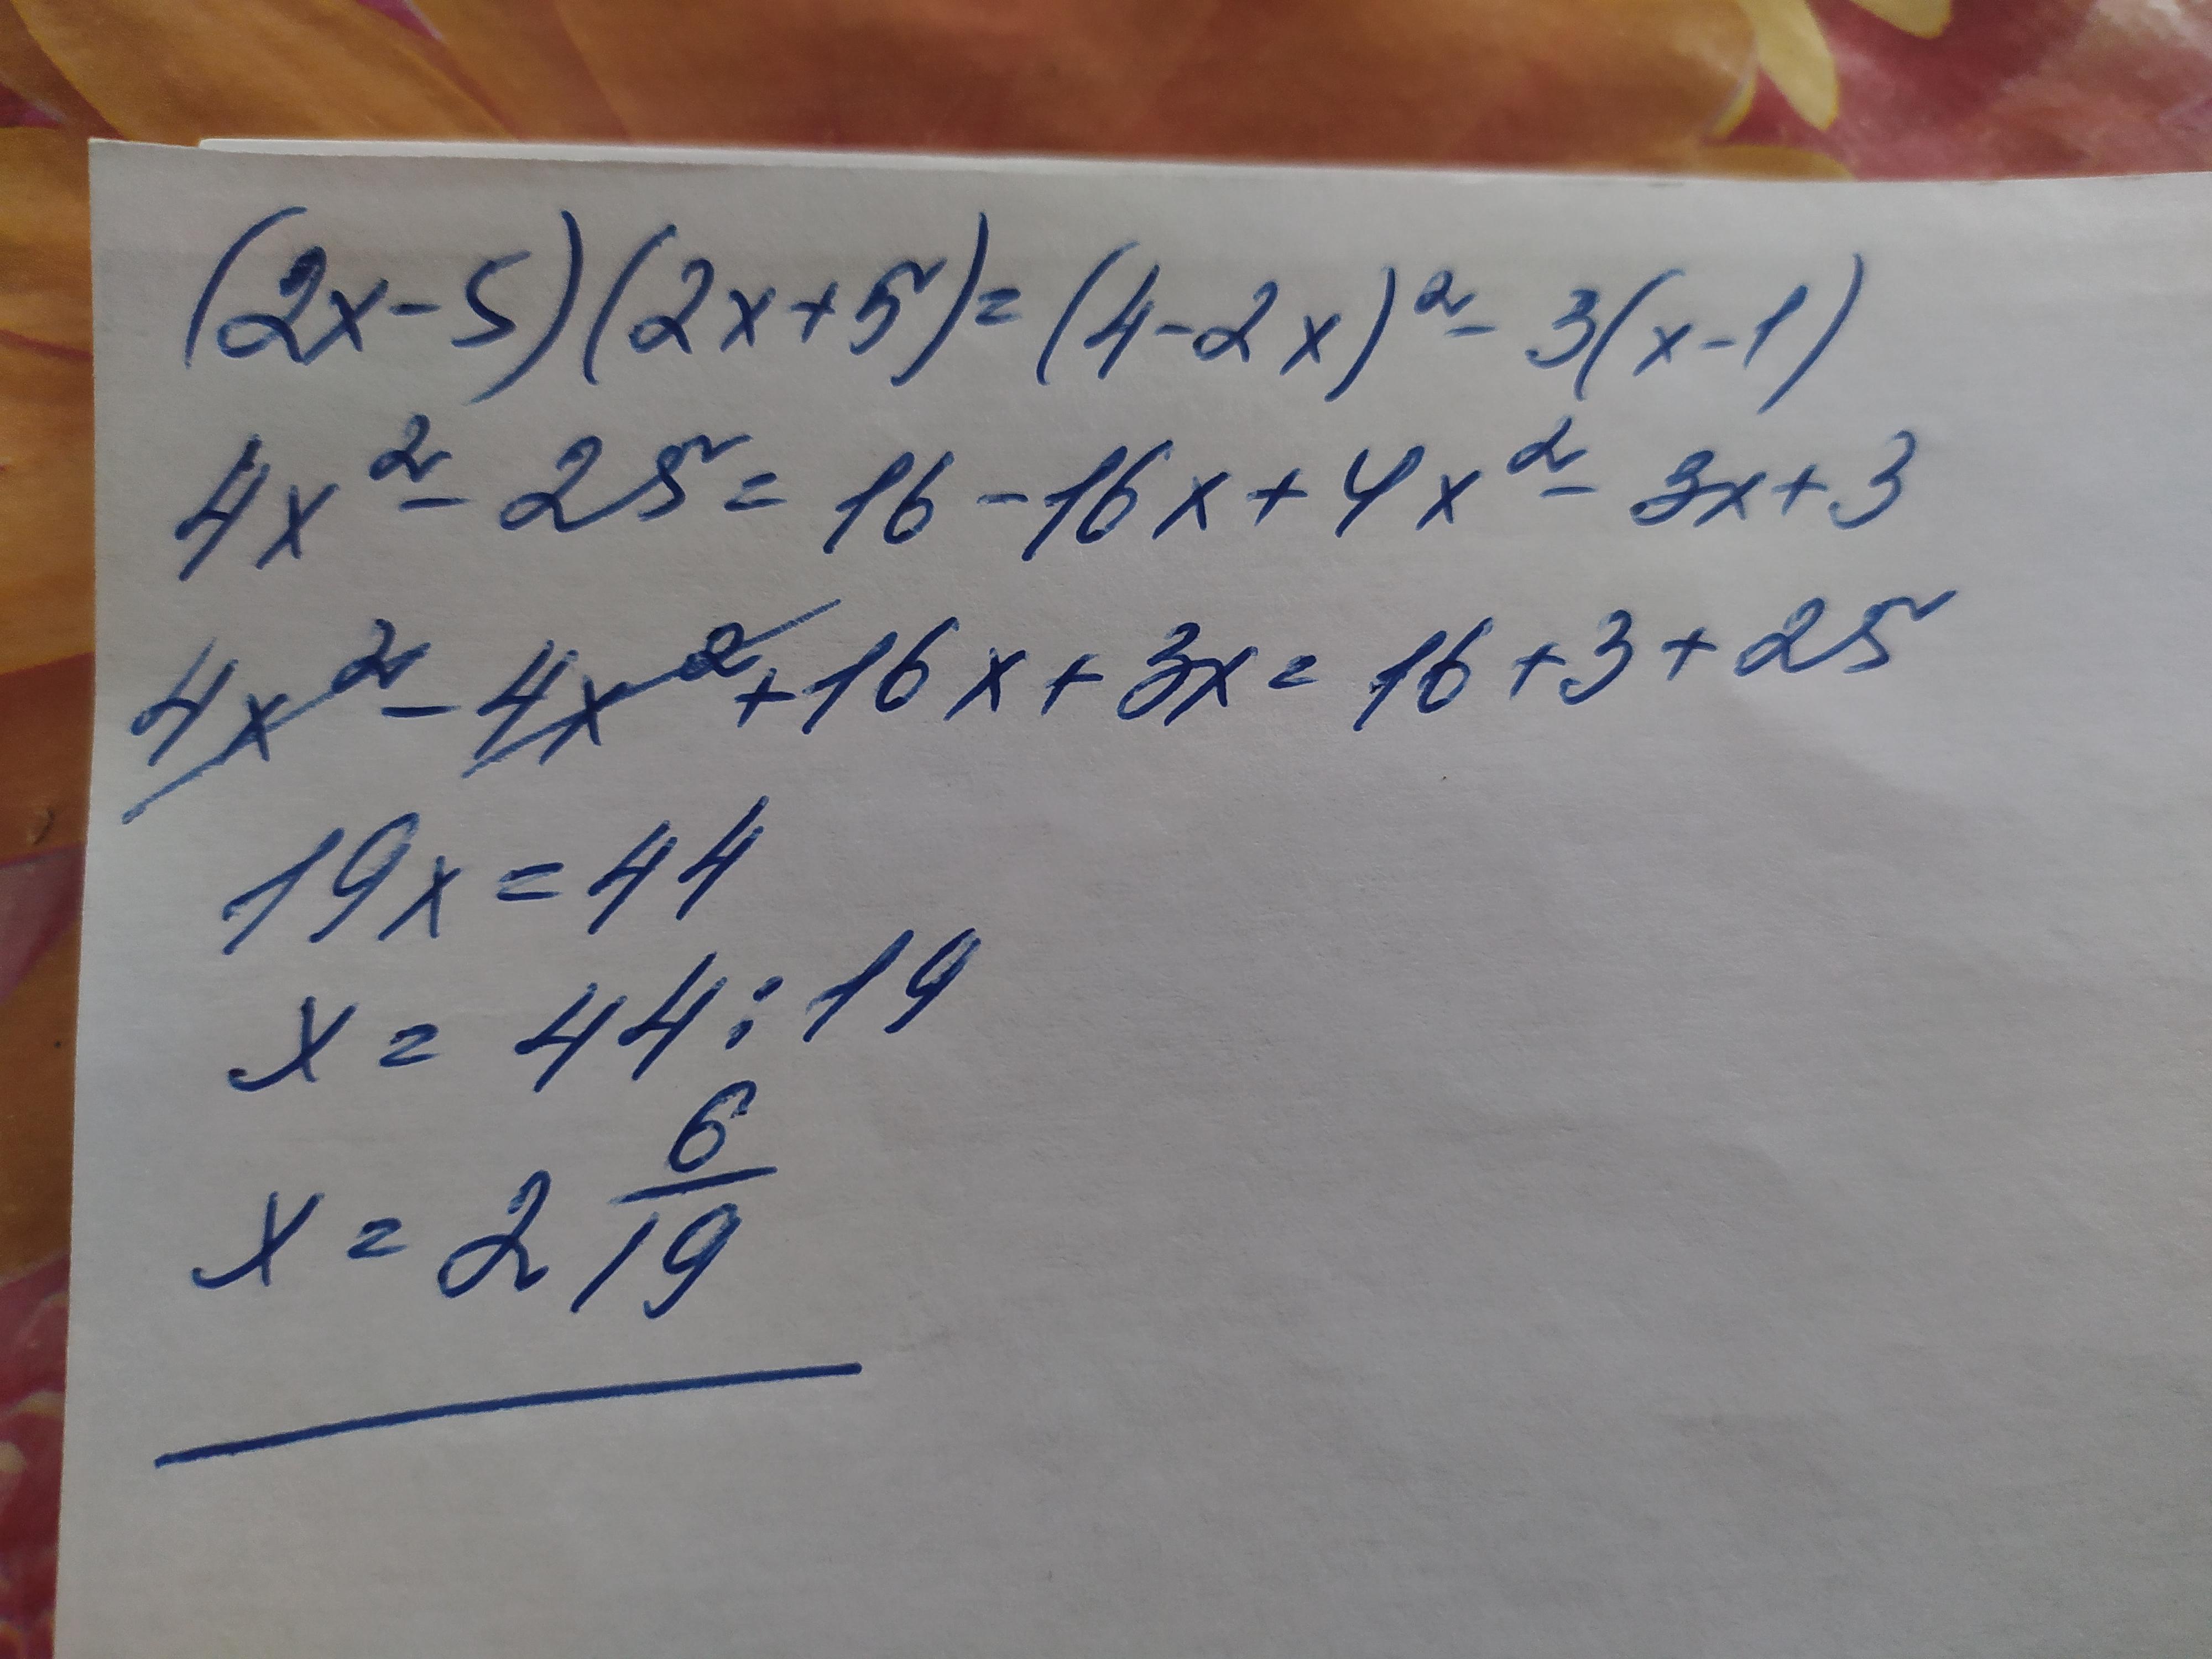 (2x-5)(2x+5)=(4-2x)²-3(x-1)
4x²-25=16-16x+4x²-3x+3
4x²-4x²+16x+3x=16+3+25
19x=44
x=44:19
x=2 6/19